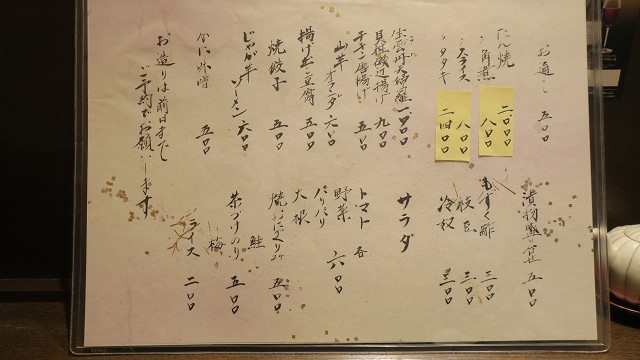 お通し 五〇〇
たん焼 二〇〇〇
〃 角煮 八〇〇
〃 スライス 八〇〇
〃 タタキ 二四〇〇
生雲丹大葉 一〇〇〇
貝柱磯辺揚げ 九〇〇
チキン唐揚げ 五〇〇
山芋オマダ 六〇〇
揚げ出し豆腐 五〇〇
焼餃子 五〇〇
じゃが芋ソーメン 六〇〇
かに味噌 五〇〇
お造りは前日までに
ご予約でお願いします
漬物盛り合せ 五〇〇
もずく酢 三〇〇
枝豆 三〇〇
冷奴 三〇〇
サラダ
トマト 各
野菜 六〇〇
パリパリ
大根
焼おにぎり2ケ 五〇〇
鮭
茶づけのり 五〇〇
梅
ライス 二〇〇